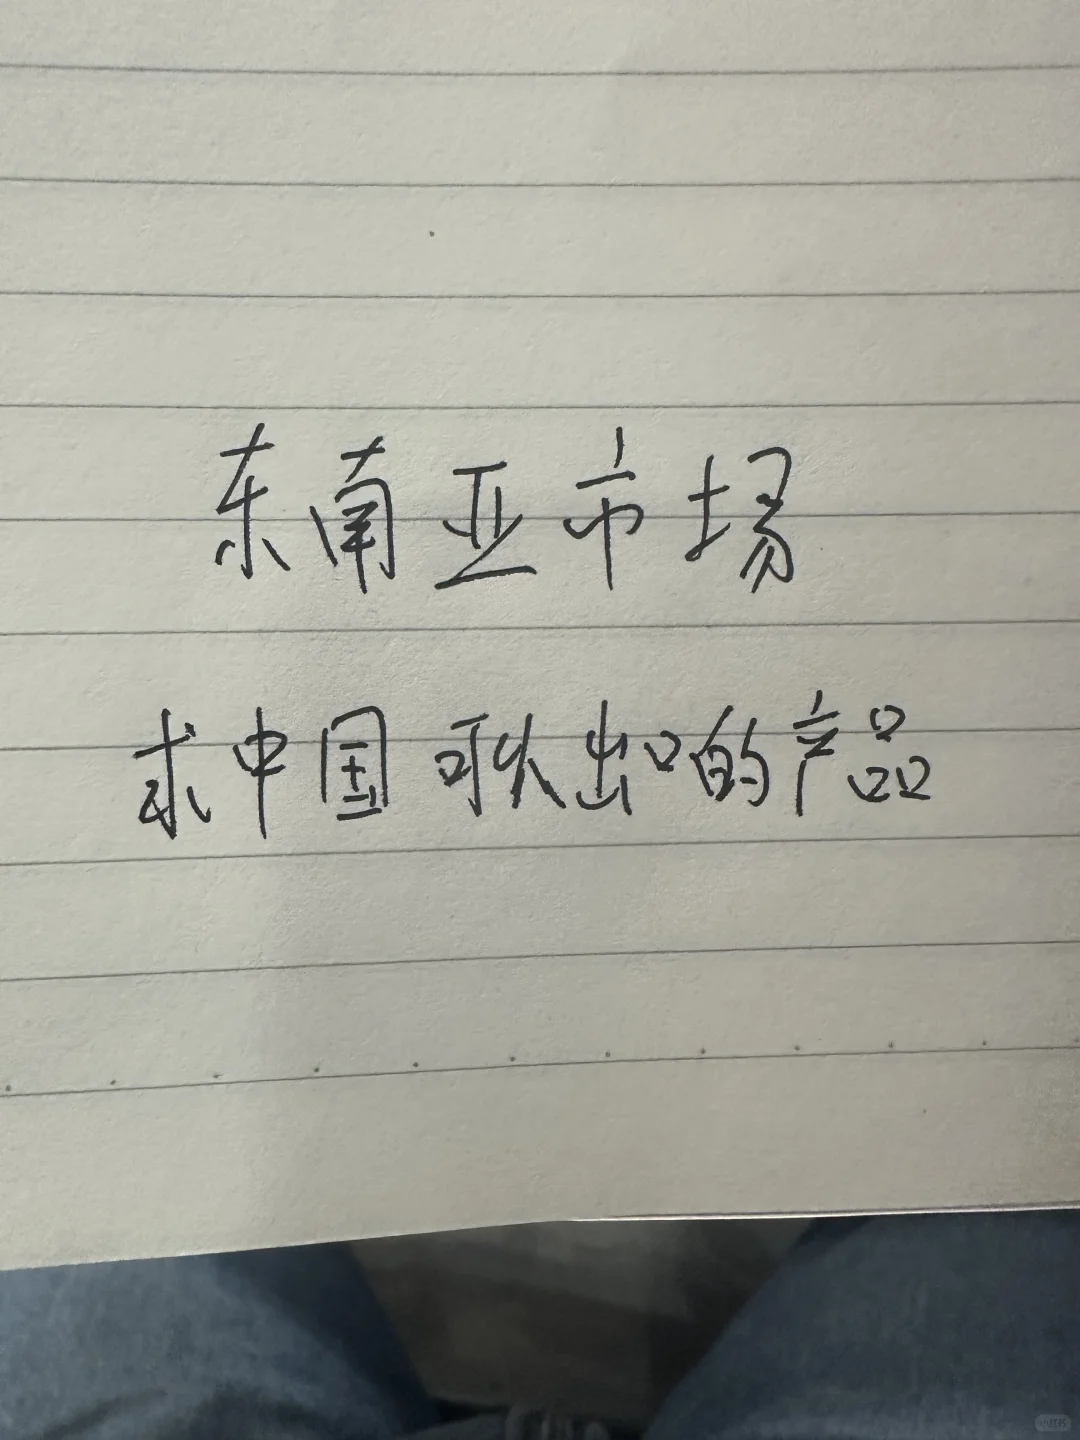 东南亚市场
求中国可以出口的产品
小红书